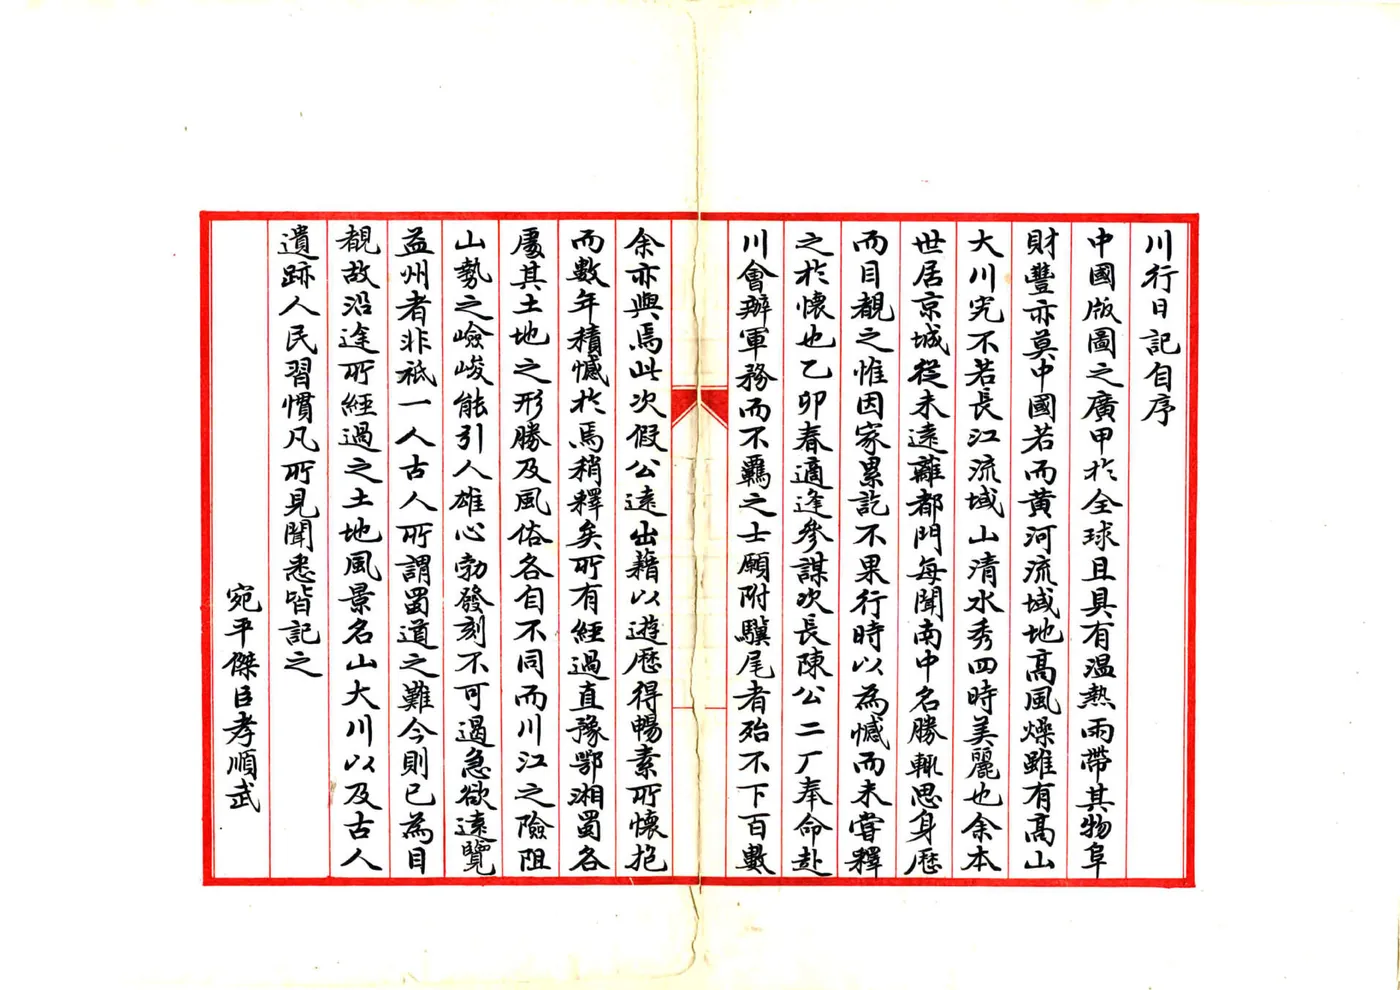 川行日記自序
中國版圖之廣甲於全球且具有温熱雨帶其物阜
財豐亦莫中國若而黄河流域地高風燥雖有高山
大川究不若長江流域山清水秀四時美麗也余本
世居京城從未遠離都門每聞南中名勝輒思身歷
而目覩之惟因家累訖不果行時以為憾而未嘗釋
之於懷也乙卯春適逢參謀次長陳公二厂奉命赴
川會辦軍務而不羈之士願附驥尾者殆不下百數
余亦與焉此次假公遠出藉以遊歷得暢素所懷抱
而數年積憾於焉稍釋矣所有經過直豫鄂湘蜀各
處其土地之形勝及風俗各自不同而川江之險阻
山勢之嶮峻能引人雄心勃發刻不可遏急欲遠覽
益州者非祗一人古人所謂蜀道之難今則已為目
覩故沿途所經過之土地風景名山大川以及古人
遺跡人民習慣凡所見聞悉皆記之
宛平傑臣孝順武